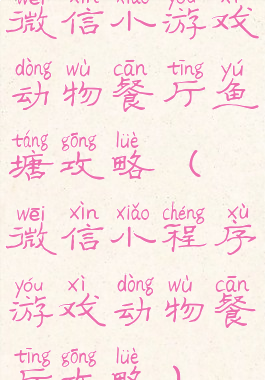 wēi xìn xiǎo yóu xì
微信小游戏
dòng wù cān tīng yú
动物餐厅鱼
táng gōng lüè
塘攻略（
wēi xìn xiǎo chéng xù
微信小程序
yóu xì dòng wù cān
游戏动物餐
tīng gōng lüè
厅攻略）